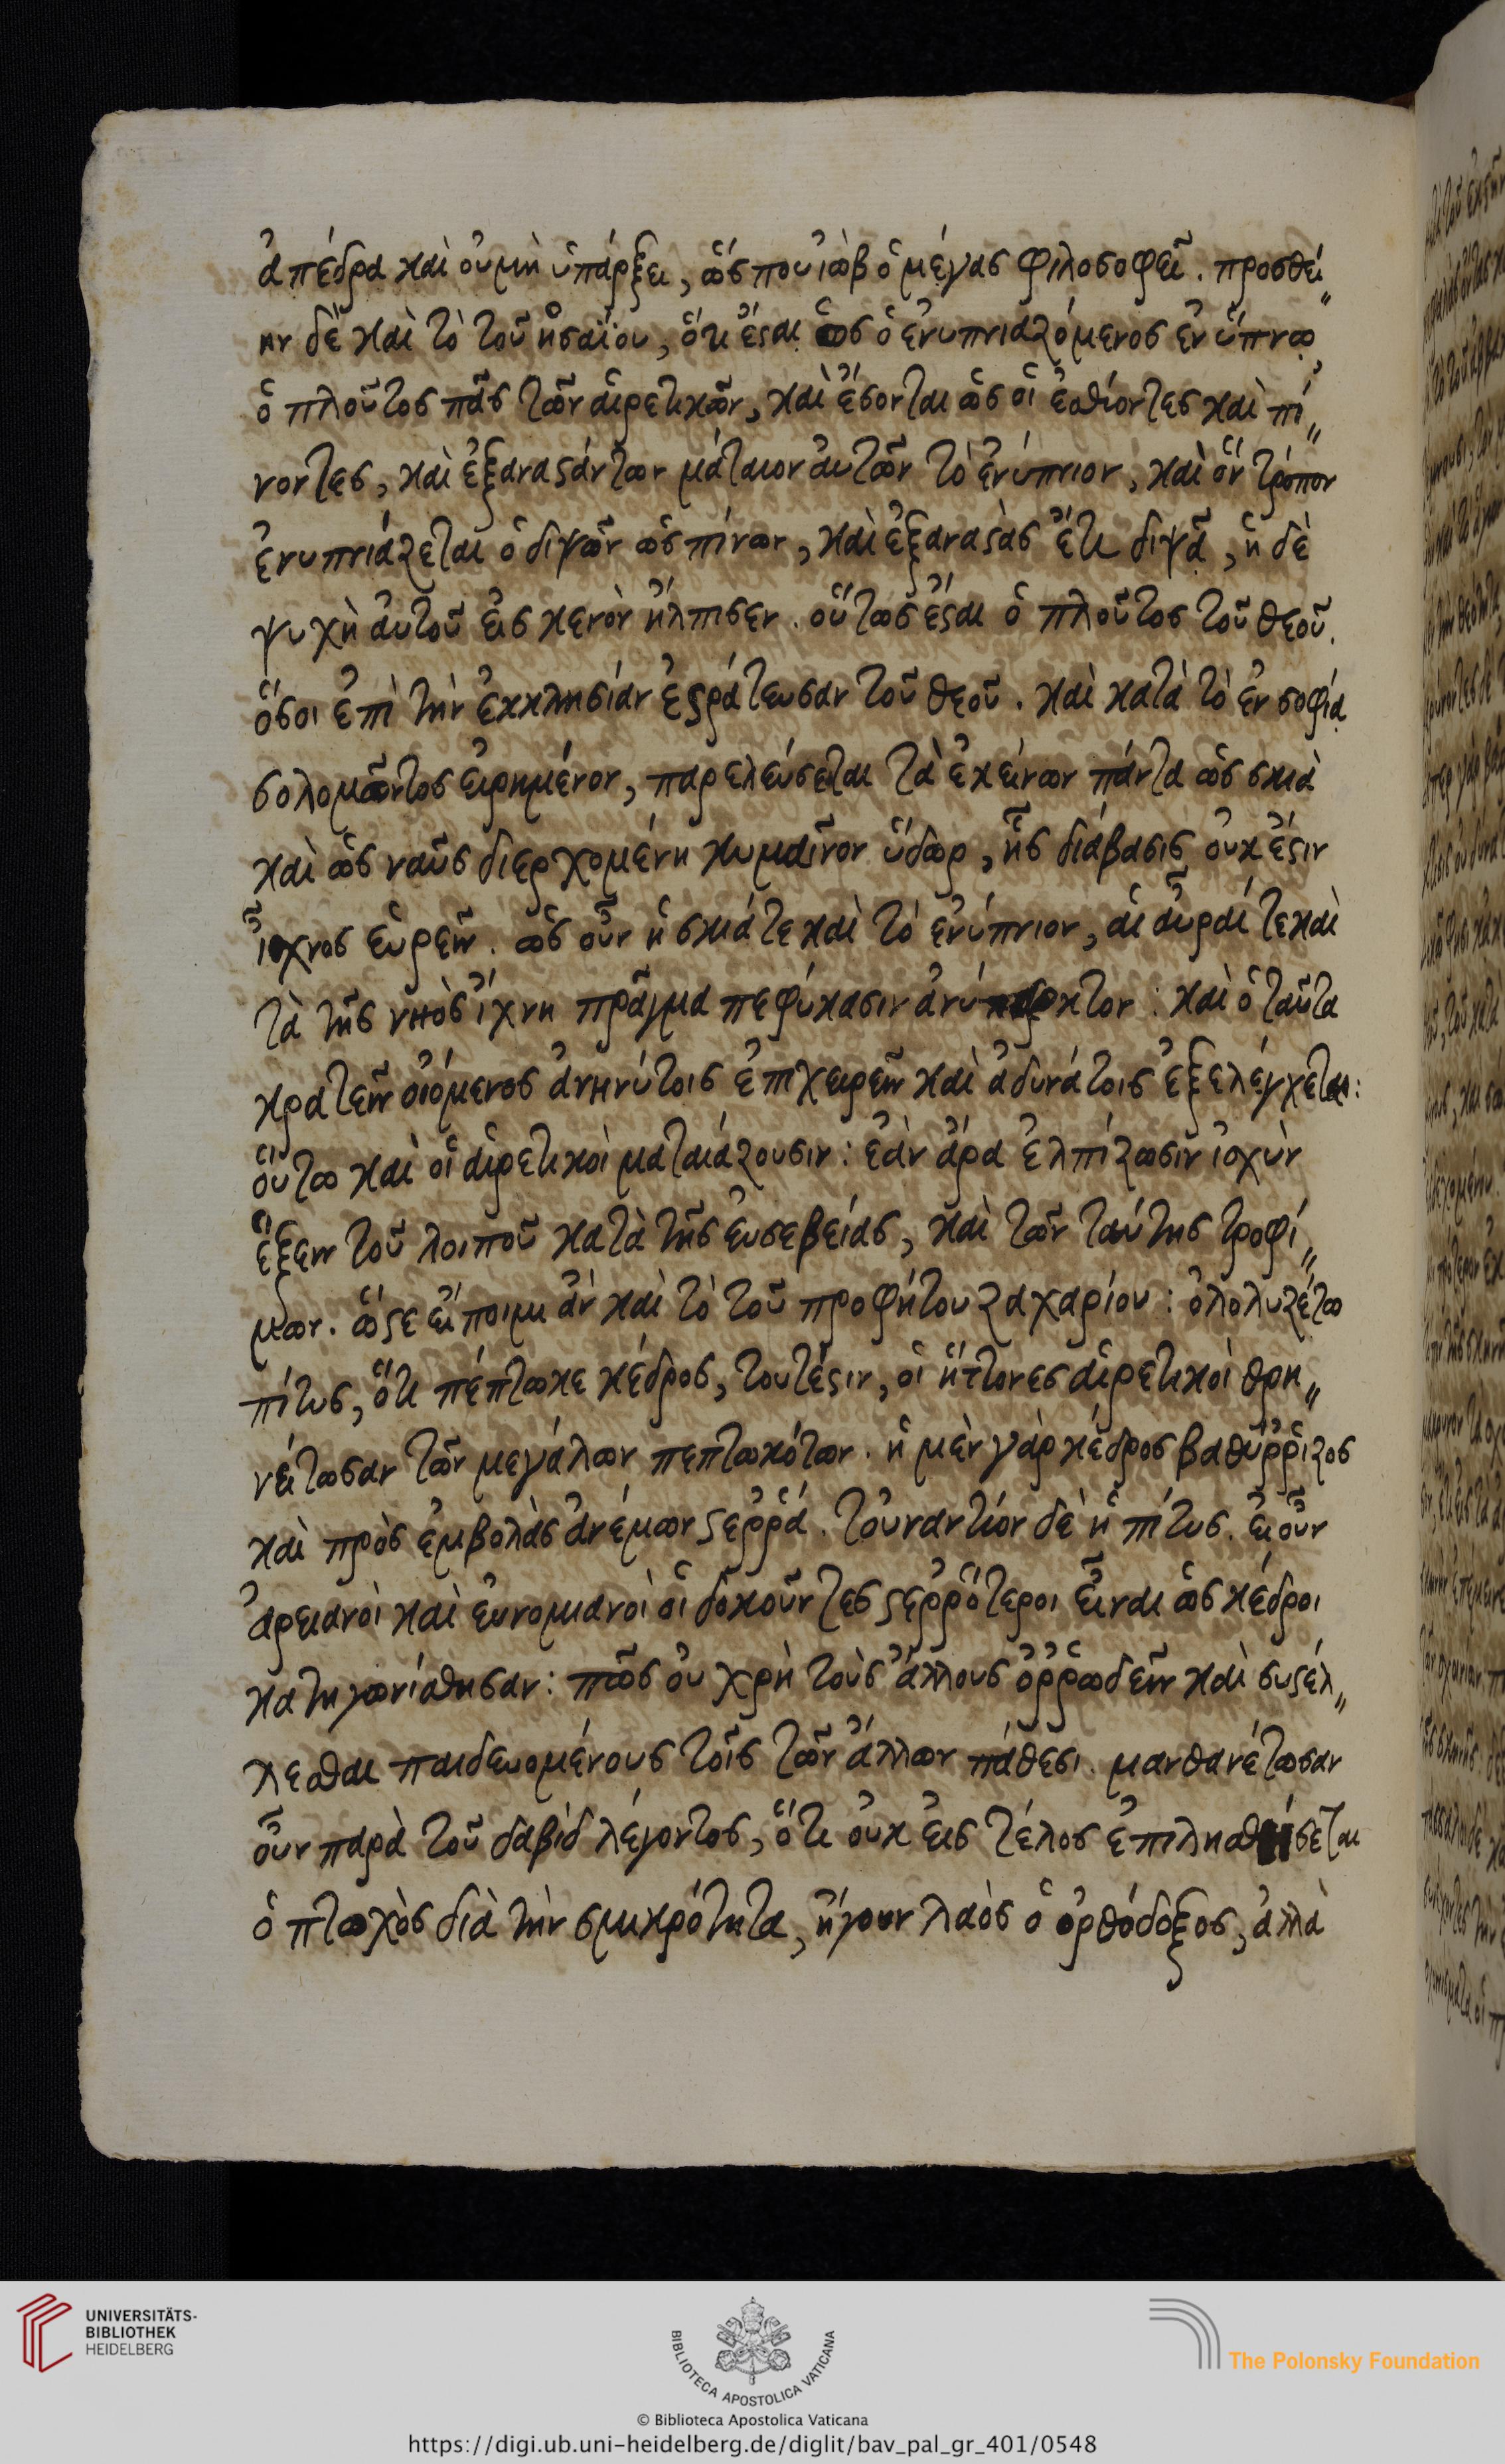 ἀπέδρα καὶ οὐ μὴ ὑπάρξει, ὥς που ἰὼβ ὁ μέγας φιλοσοφεῖ. προσθεί„
ην δὲ καὶ τὸ τοῦ ἡσαΐου, ὅτι ἔσται ὡς ὁ ἐνυπνιαζόμενος ἐν ὕπνω
ὁ πλοῦτος πᾶς τῶν αἱρετικῶν, καὶ ἔσονται ὡς οἱ ἐσθίοντες καὶ πί„
νοντες, καὶ ἐξαναστάντων μάταιον αὐτῶν τὸ ἐνύπνιον, καὶ ὃν τρόπον
ἐνυπνιάζεται ὁ διψῶν ὡς πίνων, καὶ ἐξαναστὰς ἔτι διψᾶ, ἡ δὲ
ψυχὴ αὐτοῦ εἰς κενὸν ἤλπισεν. οὕτως ἔσται ὁ πλοῦτος τοῦ θεοῦ.
ὅσοι ἐπὶ τὴν ἐκκλησίαν ἐστράτευσαν τοῦ θεοῦ. καὶ κατὰ τὸ ἐν σοφία
σολομῶντος εἰρημένον, παρελεύσεται τὰ ἐκείνων πάντα ὡς σκιὰ
καὶ ὡς ναῦς διερχομένη κυμαῖνον ὕδωρ, ἧς διάβασις οὐκ ἔστιν
ἴχνος εὑρεῖν. ὡς οὖν ἡ σκιά τε καὶ τὸ ἐνύπνιον, αἱ αὖραί τε καὶ
τὰ τῆς νηὸς ἴχνη πρᾶγμα πεφύκασιν ἀνύπαρκτον: καὶ ὁ ταῦτα
κρατεῖν οἰόμενος ἀνηνύτοις ἐπιχειρεῖν καὶ ἀδυνάτοις ἐξελέγχεται:
οὕτω καὶ οἱ αἱρετικοὶ ματαιάζουσιν: ἐὰν ἄρα ἐλπίζωσιν ἰσχὺν
ἕξειν τοῦ λοιποῦ κατὰ τῆς εὐσεβείας, καὶ τῶν ταύτης τροφί„
μων. ὥστε εἴποιμι ἂν καὶ τὸ τοῦ προφήτου ζαχαρίου: ὀλολυζέτω
πίτυς, ὅτι πέπτωκε κέδρος, τουτέστιν, οἱ ἥττονες αἱρετικοὶ θρη„
νείτωσαν τῶν μεγάλων πεπτωκότων. ἡ μὲν γὰρ κέδρος βαθύῤῥιζος
καὶ πρὸς ἐμβολὰς ἀνέμων στεῤῥά. τοὐναντίον δὲ ἡ πίτυς. εἰ οὖν
ἀρειανοὶ καὶ εὐνομιανοὶ οἱ δοκοῦντες στεῤῥότεροι εἶναι ὡς κέδροι
κατηγωνίσθησαν: πῶς οὐ χρὴ τοὺς ἄλλους ὀῤῥωδεῖν καὶ συστέλ„
λεσθαι παιδευομένους τοῖς τῶν ἄλλων πάθεσι. μανθανέτωσαν
οὖν παρὰ τοῦ δαβὶδ λέγοντος, ὅτι οὐκ εἰς τέλος ἐπιλησθήσεται
ὁ πτωχὸς διὰ τὴν σμικρότητα, ἤγουν λαὸς ὁ ὀρθόδοξος, ἀλλὰ
UNIVERSITÄTS-
BIBLIOTHEK
HEIDELBERG
BIBLIOTECA APOSTOLICA VATICANA
The Polonsky Foundation
© Biblioteca Apostolica Vaticana
https://digi.ub.uni-heidelberg.de/diglit/bav_pal_gr_401/0548